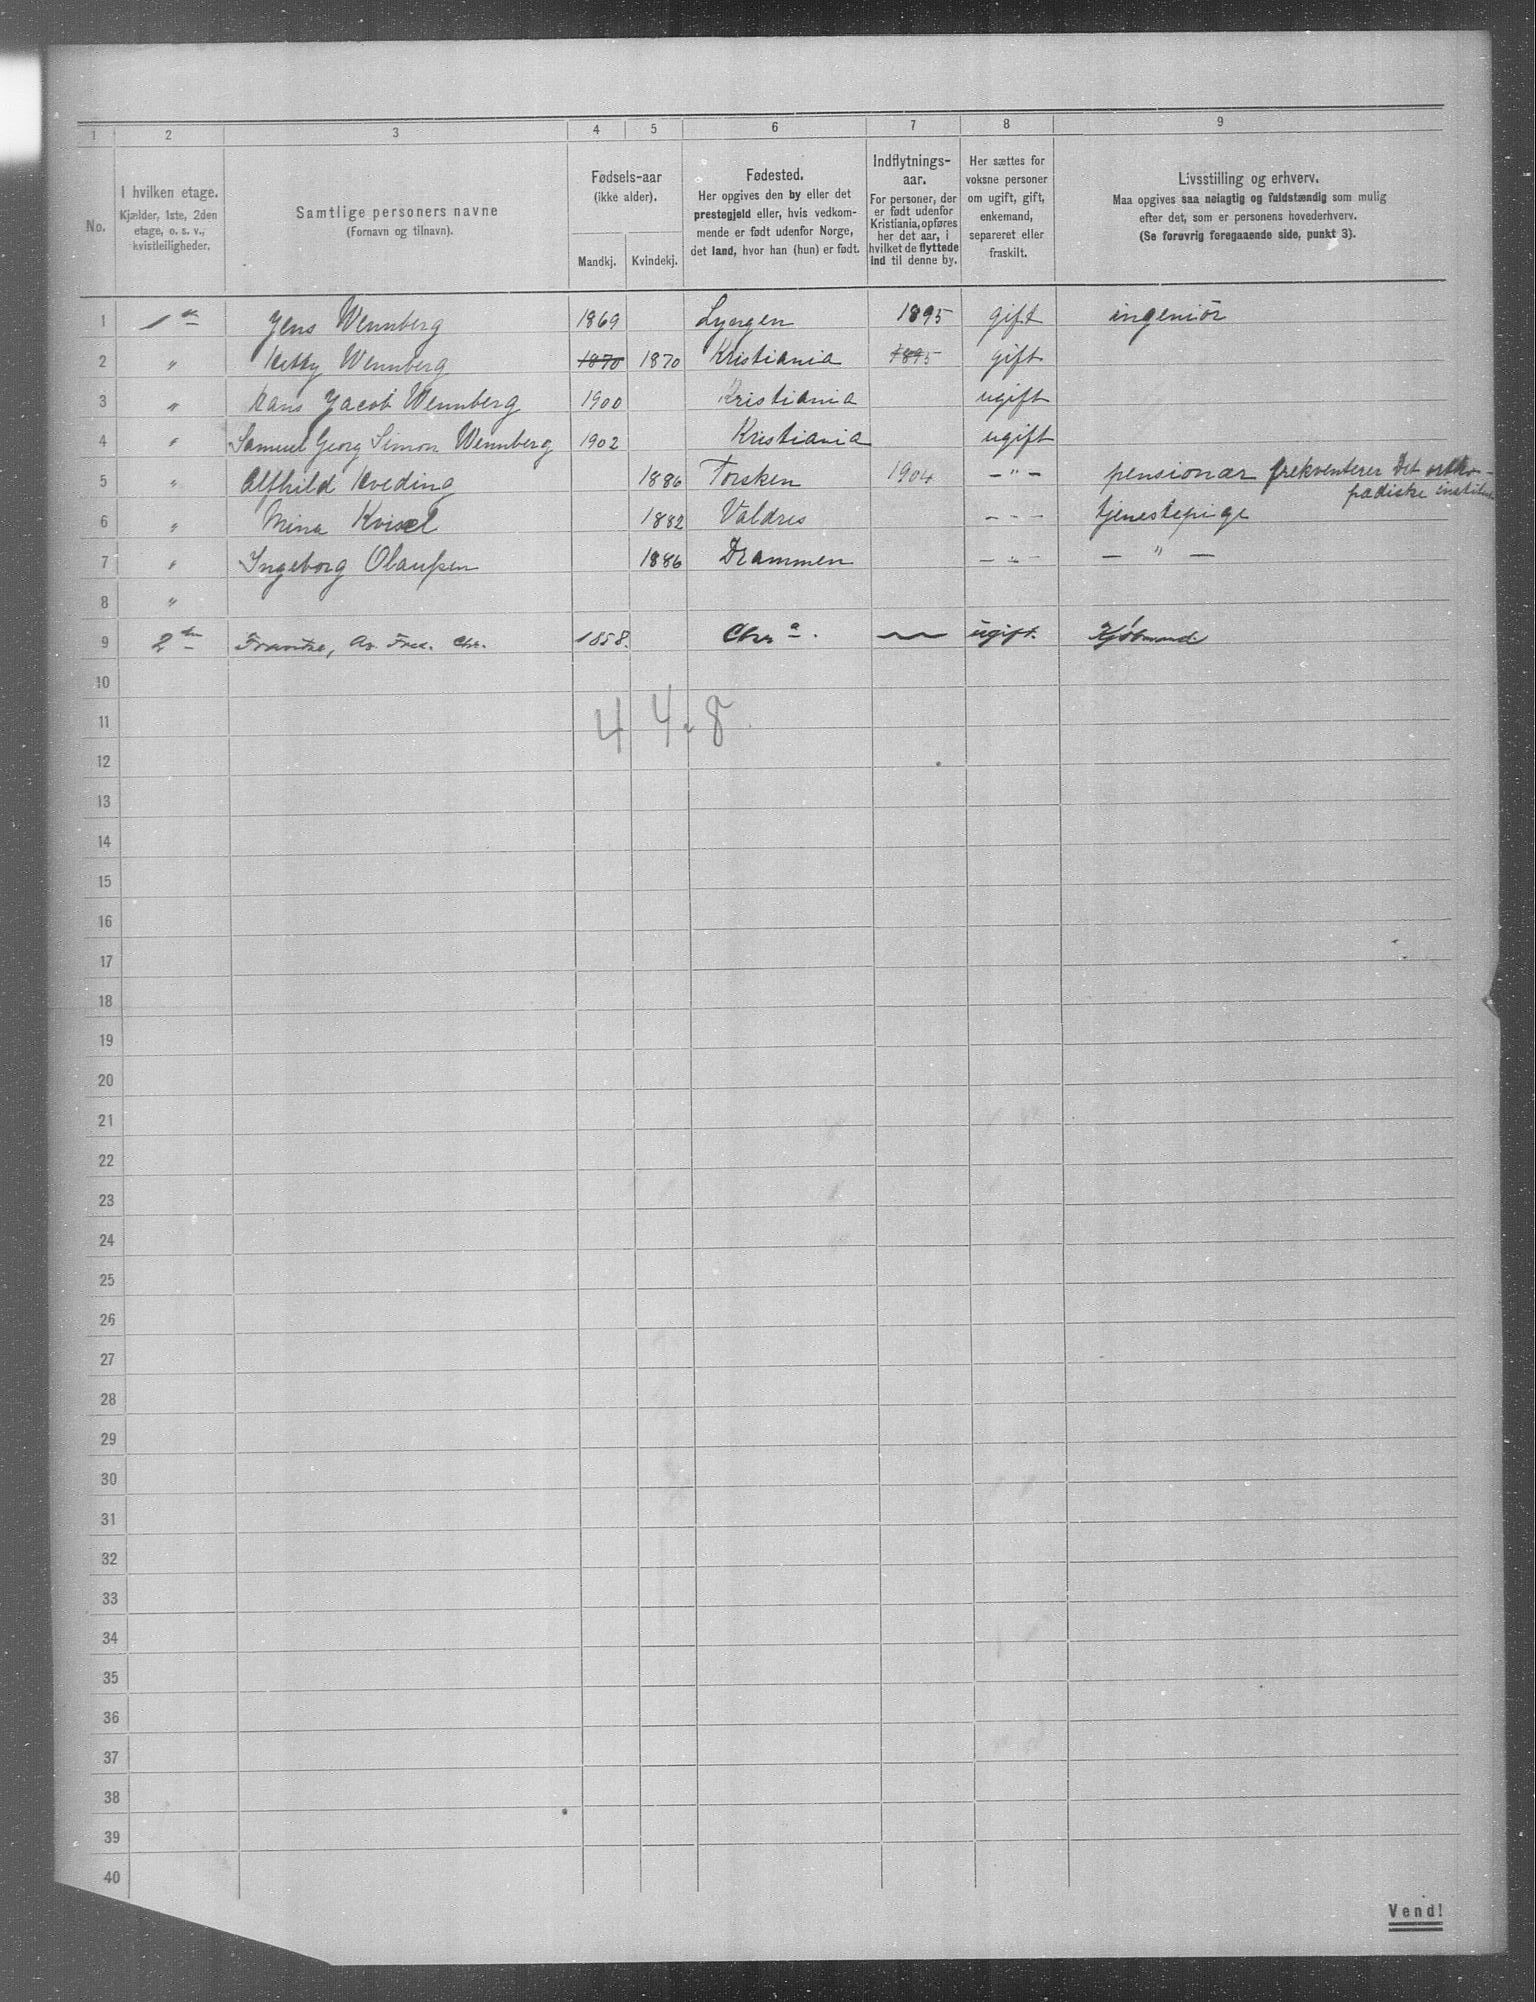 1 2 3 4 5 6 7 8 9
No. I hvilken etage. Kjælder, 1ste, 2den etage, o. s. v., kvistleiligheder.
Samtlige personers navne (Fornavn og tilnavn).
Fødsels-aar (ikke alder). Mandkj. Kvindekj.
Fødested. Her opgives den by eller det prestegjeld eller, hvis vedkommende er født udenfor Norge, det land, hvor han (hun) er født.
Indflytnings-aar. For personer, der er født udenfor Kristiania, opføres her det aar, i hvilket de flyttede ind til denne by.
Her sættes for voksne personer om ugift, gift, enkemand, separeret eller fraskilt.
Livsstilling og erhverv. Maa opgives saa nøiagtig og fuldstændig som mulig efter det, som er personens hovederhverv. (Se forøvrig foregaaende side, punkt 3).
1 1ste Jens Wennberg 1869 Lyngen 1895 gift ingeniör
2 " Ketty Wennberg 1870 1870 Kristiania 1895 gift
3 " Hans Jacob Wennberg 1900 Kristiania ugift
4 " Samuel Georg Simon Wennberg 1902 Kristiania ugift
5 " Alfhild Kveding 1886 Torsken 1904 — " — pensionær frekventerer Det orthopædiske
6 " Mina 1882 Valdres — " — tjenestepige
7 " Ingeborg Olaussen 1886 Drammen — " — — " —
8 "
9 2den Fred. Chr. 1858. Chr.a ugift. Kjøbmand
10
11 4 4 . 8
12
13
14
15
16
17
18
19
20
21
22
23
24
25
26
27
28
29
30
31
32
33
34
35
36
37
38
39
40
Vend!